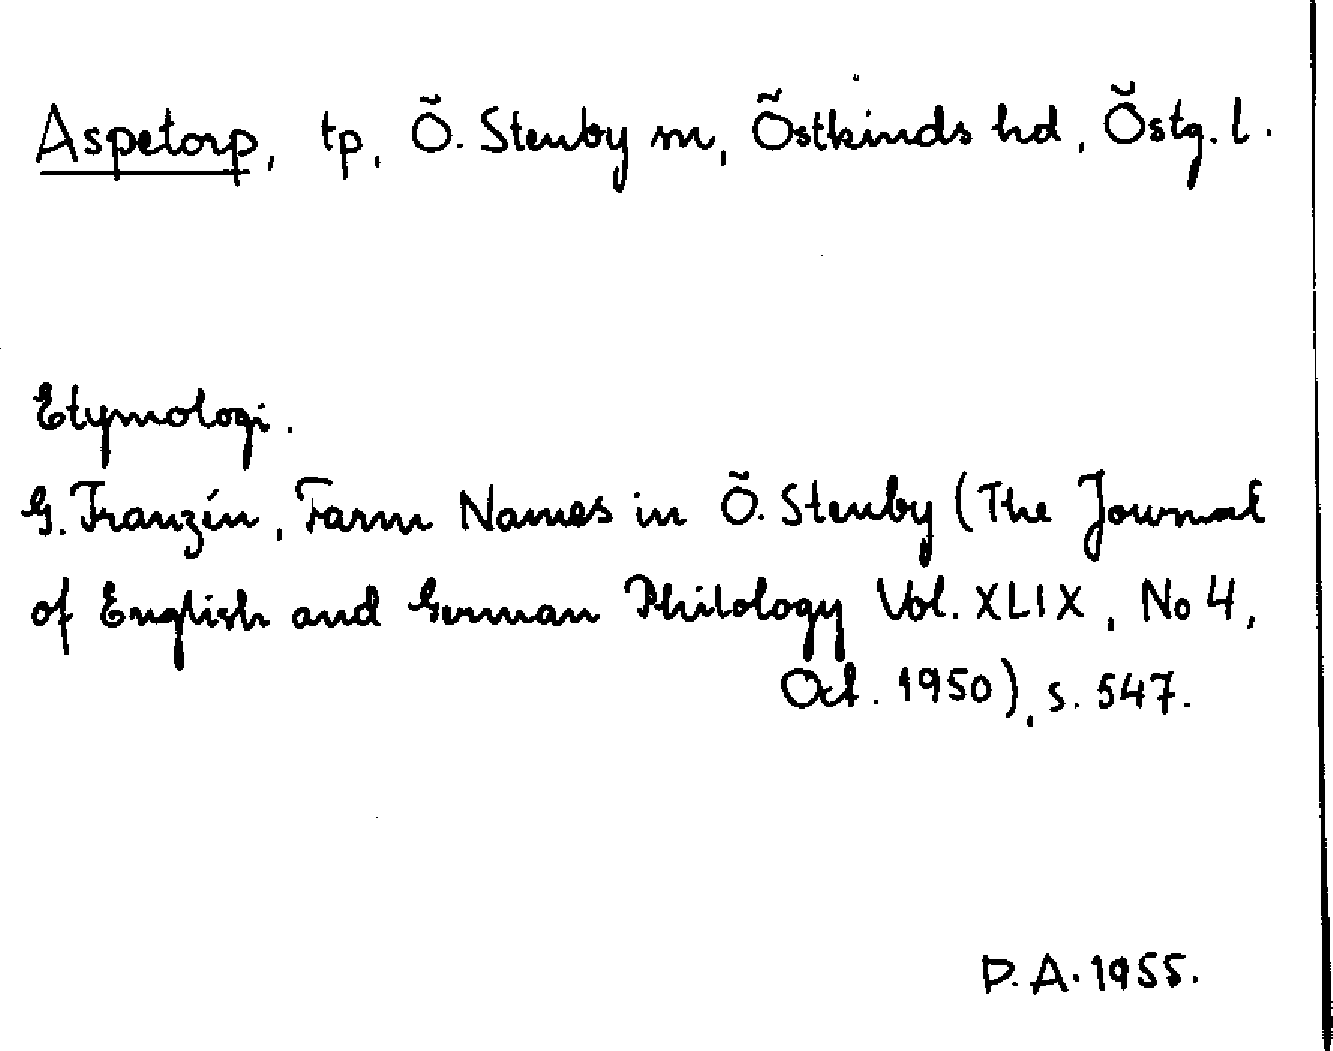 Aspetorp, tp, Ö. Stenby sn, Östkinds hd, Östg. l.
Etymologi.
G. Franzén, Farm Names in Ö. Stenby (The Journal
of English and German Philology Vol. XLIX, No 4,
Oct. 1950), s. 547.
D.A. 1955.